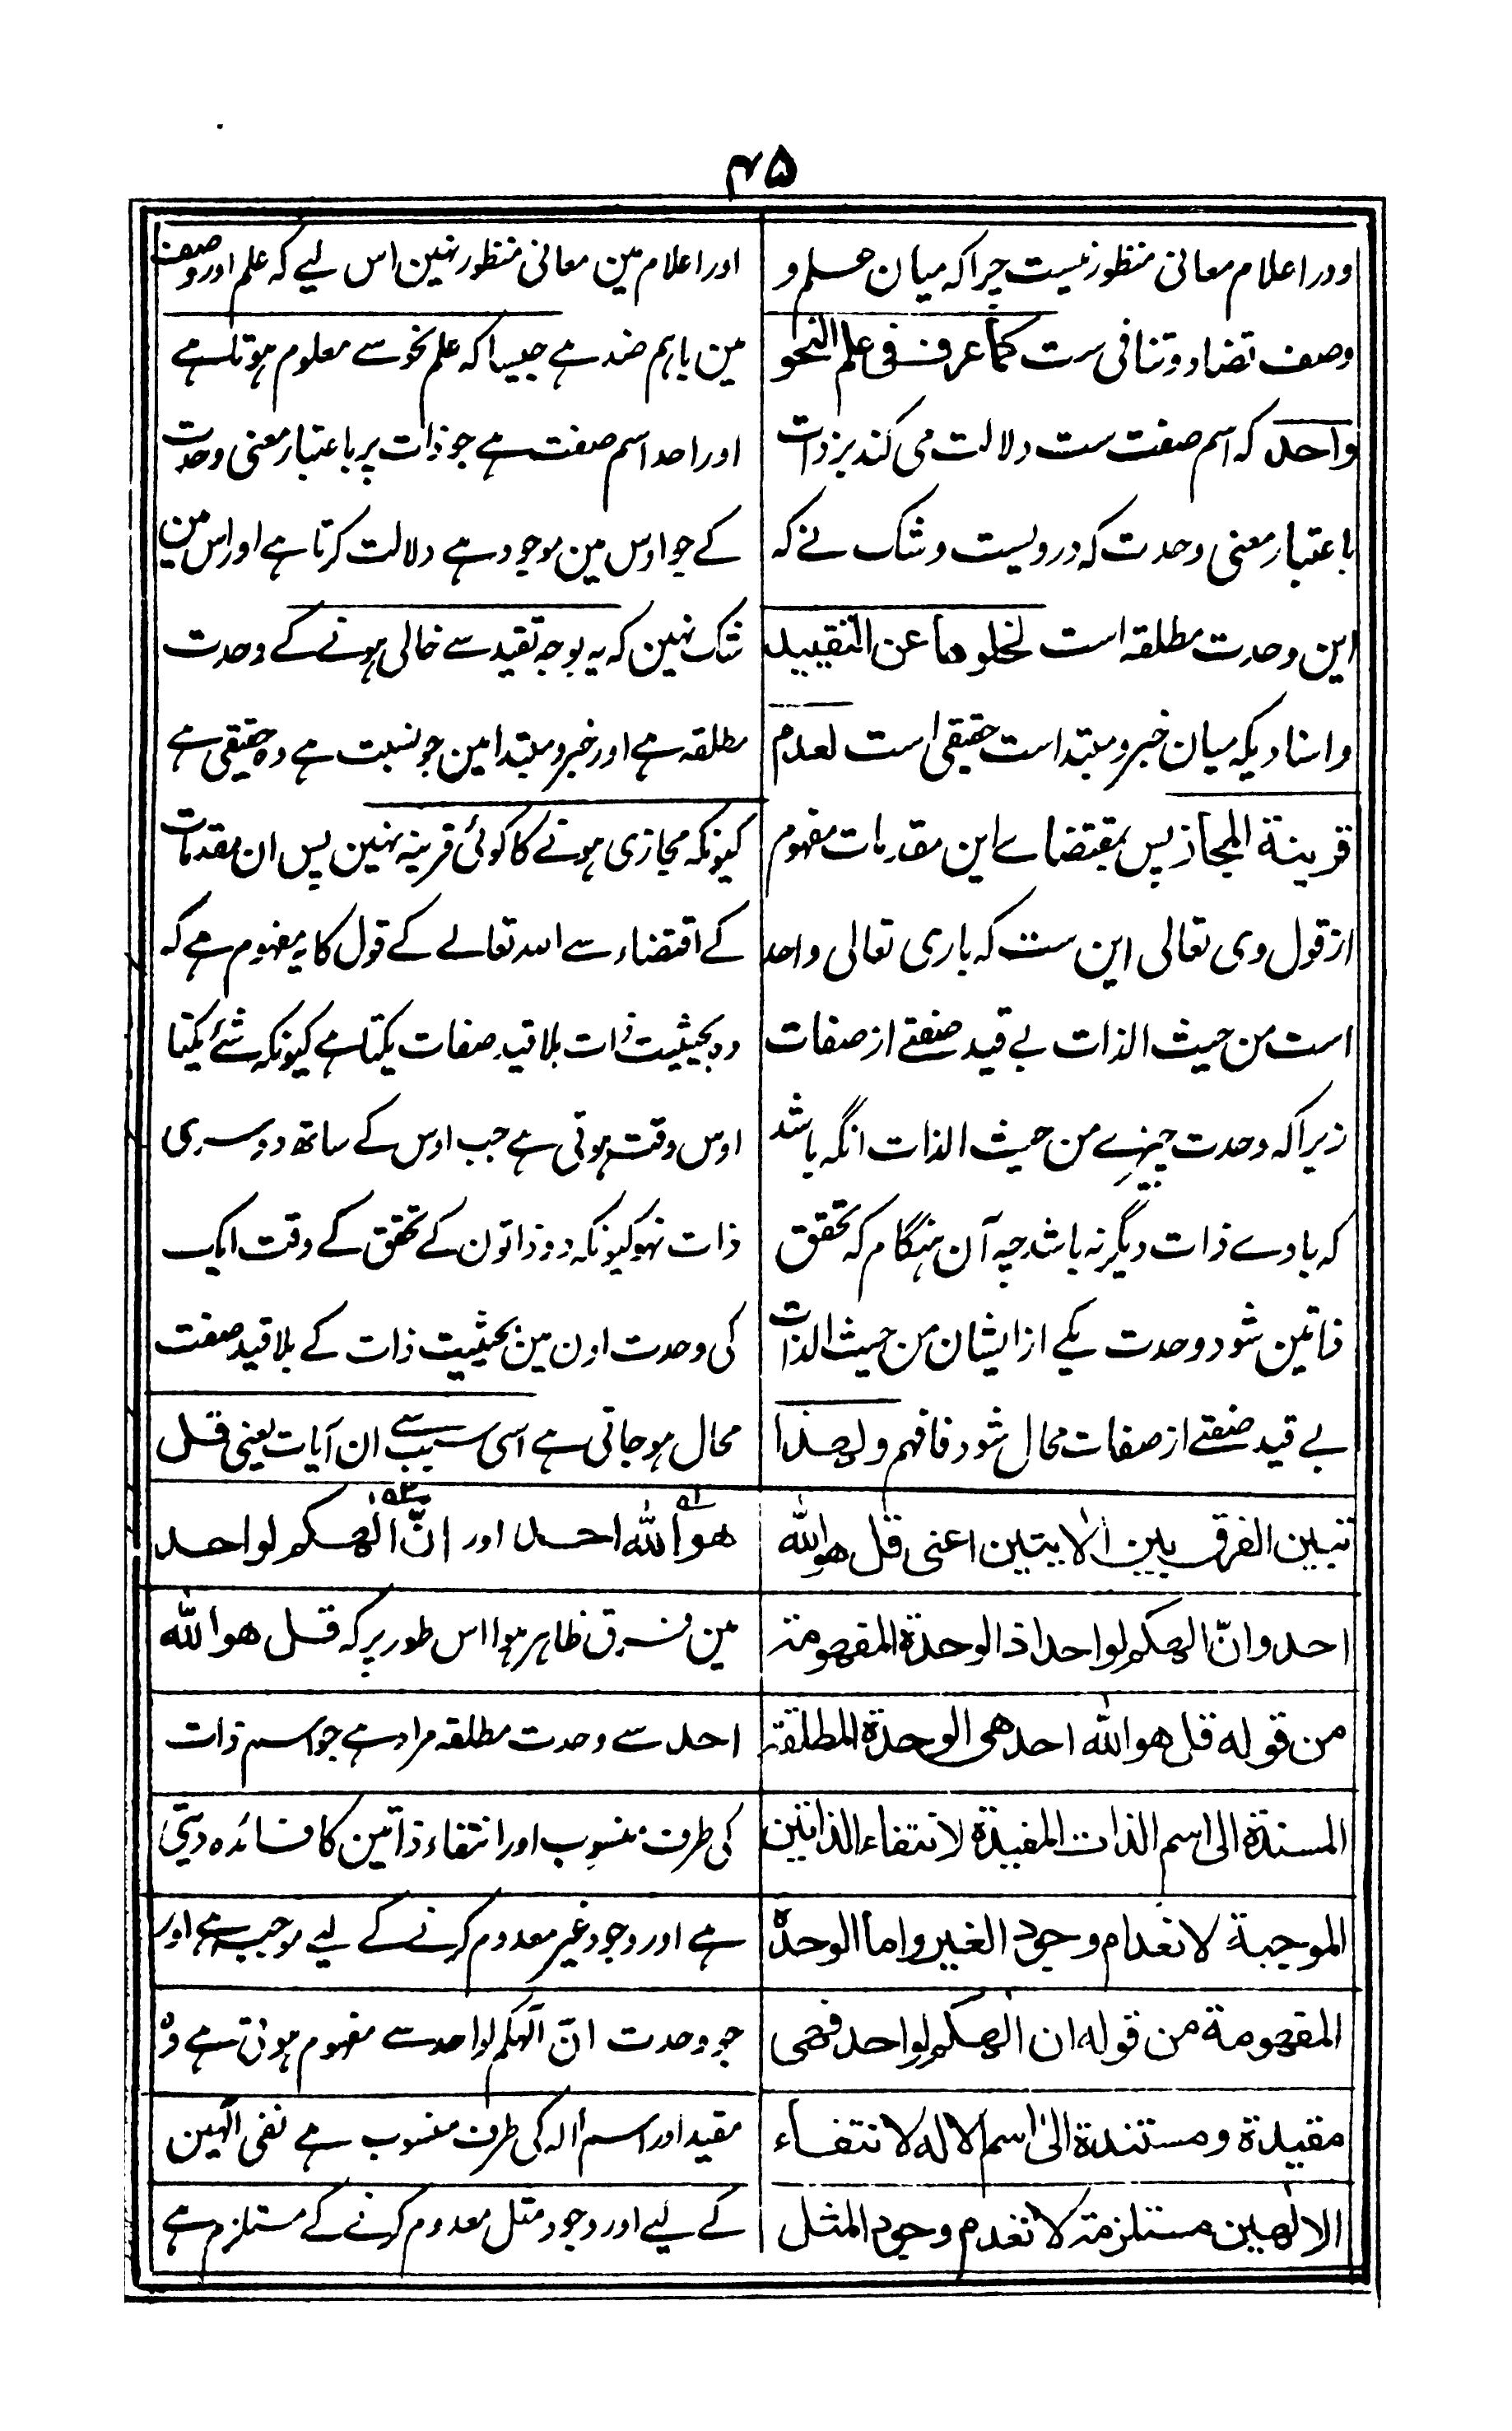 ۴۵
ودر اعلام معانی منظور نیست چرا کہ میان علم و
وصف تضاد و تنافی ست کما عرف فی علم النحو
واحد کہ اسم صفت ست دلالت می کند بر ذات
باعتبار معنی وحدت کہ درویست و شک نے کہ
این وحدت مطلقہ است لخلوها عن التقیید
واسنادیکہ میان خبر و مبتدا است حقیقی است لعدم
قرینة المجاز پس بمقتضاے این مقدمات مفہوم
از قول وی تعالی این ست کہ باری تعالی واحد
است من حیث الذات بے قید صفتے از صفات
زیرا کہ وحدت چیزے من حیث الذات انگہ باشد
کہ باوے ذات دیگر نہ باشد چہ آن ہنگام کہ تحقق
ذاتین شود وحدت یکے از ایشان من حیث الذات
بے قید صفتے از صفات محال شود فافہم ولهذا
تبین الفرق بین الایتین اعنی قل هو الله
احد وانّ الهکم لواحد اذ الوحدة المفهومة
من قوله قل هو الله احد هی الوحدة المطلقة
المسندة الی اسم الذات المفیدة لانتفاء الذاتین
الموجبة لانعدام وجود الغیر واما الوحدة
المفهومة من قوله ان الهکم لواحد فهی
مقیدة ومستندة الیٰ اسم الاله لانتفاء
الالٰهین مستلزمة لانعدم وجود المثل
اور اعلام مین معانی منظور نہین اس لیے کہ علم اور وصف
مین باہم ضد ہے جیسا کہ علم نحو سے معلوم ہوتا ہے
اور احد اسم صفت ہے جو ذات پر باعتبار معنی وحدت
کے جو اوس مین موجود ہے دلالت کرتا ہے اور اس مین
شک نہین کہ یہ بوجہ تقید سے خالی ہونے کے وحدت
مطلقہ ہے اور خبر و مبتدا مین جو نسبت ہے وہ حقیقی ہے
کیونکہ مجازی ہونے کا کوئی قرینہ نہین پس ان مقدمات
کے اقتضاء سے اللہ تعالے کے قول کا یہ مفہوم ہے کہ
وہ بحیثیت ذات بلا قید صفات یکتا ہے کیونکہ شئے یکتا
اوس وقت ہوتی ہے جب اوس کے ساتھ دوسری
ذات نہو کیونکہ دو ذاتون کے تحقق کے وقت ایک
کی وحدت اون مین بحیثیت ذات کے بلا قید صفت
محال ہو جاتی ہے اسی سبب سے ان آیات یعنی قل
هو الله احد اور انّ الٰهکم لواحد
مین فرق ظاہر ہوا اس طور پر کہ قل هو الله
احد سے وحدت مطلقہ مراد ہے جو اسم ذات
کی طرف منسوب اور انتفاء ذاتین کا فائدہ دیتی
ہے اور وجود غیر معدوم کرنے کے لیے موجب ہے اور
جو وحدت انّ آلہکم لواحد سے مفہوم ہوتی ہے وہ
مقید اور اسم الہ کی طرف منسوب ہے نفی آلہین
کے لیے اور وجود مثل معدوم کرنے کے مستلزم ہے